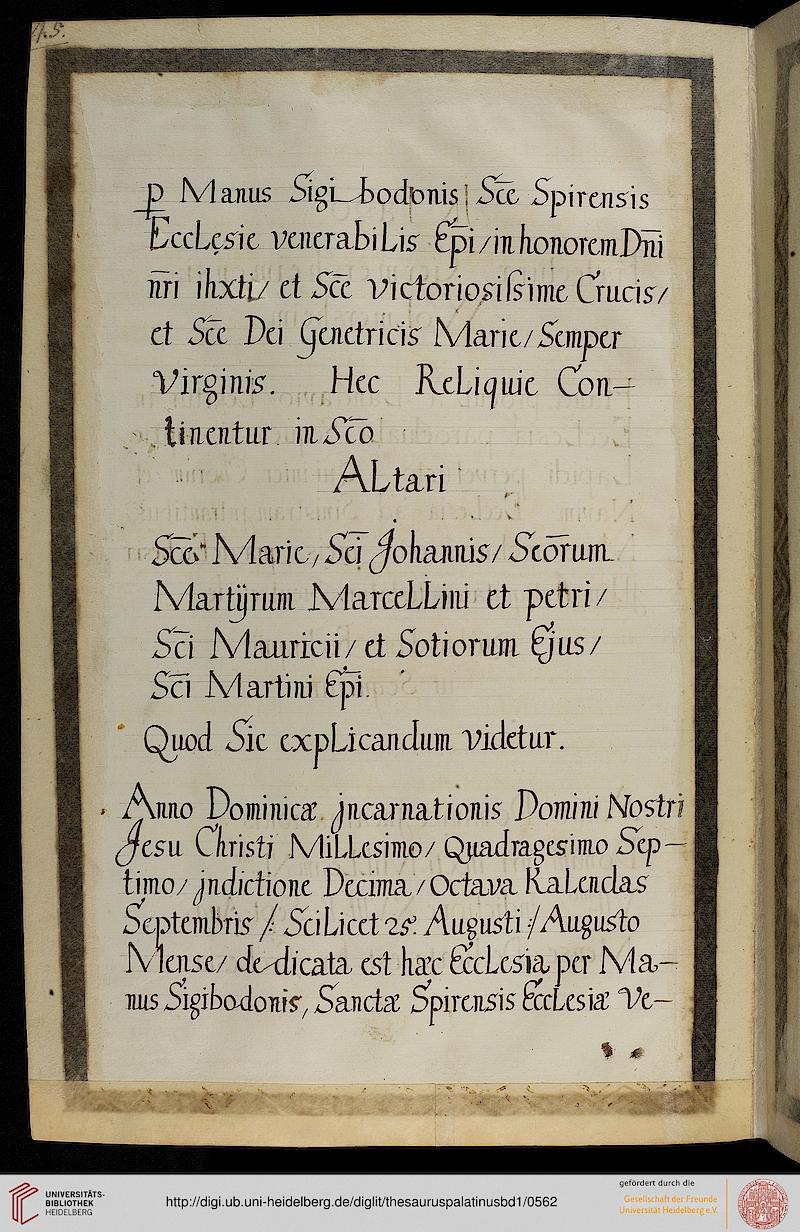 45.
p Manus Sigibodonis Sc̄e Spirensis
Ecclesie venerabilis Ep̄i / in honorem Dn̄i
n̄ri ihxti / et Sc̄e victoriosissime Crucis /
et Sc̄e Dei Genetricis Marie / Semper
Virginis. Hec Reliquie Con-
tinentur in Sc̄o
Altari
Sc̄e Marie, Sc̄i Johannis / Scōrum
Martÿrum Marcellini et petri /
Sc̄i Mauricii / et Sotiorum Ejus /
Sc̄i Martini Ep̄i.
Quod Sic explicandum videtur.
Anno Dominicæ jncarnationis Domini Nostri
Jesu Christi Millesimo / Quadragesimo Sep-
timo / jndictione Decima / Octava Kalendas
Septembris /: Scilicet 25. Augusti :/ Augusto
Mense / dedicata est hæc Ecclesia per Ma-
nus Sigibodonis, Sanctæ Spirensis Ecclesiæ Ve-
UNIVERSITÄTS-
BIBLIOTHEK
HEIDELBERG
http://digi.ub.uni-heidelberg.de/diglit/thesauruspalatinusbd1/0562
gefördert durch die
Gesellschaft der Freunde
Universität Heidelberg e.V.